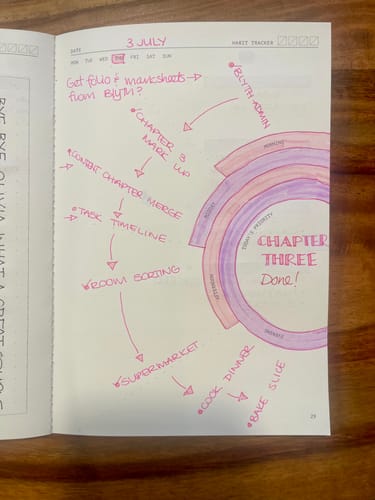 DATE 3 JULY
HABIT TRACKER
MON TUE WED THU FRI SAT SUN
Get folio & marksheets →
from Blyth?
BLYTH ADMIN
CHAPTER 3
MARK UP
CONTENT CHAPTER MERGE
TASK TIMELINE
ROOM SORTING
SUPERMARKET
COOK DINNER
BAKE SLICE
MORNING
MIDDAY
AFTERNOON
EVENING
TODAY'S PRIORITY
CHAPTER
THREE
Done!
29
BYE BYE OLIVIA! WHAT A GREAT